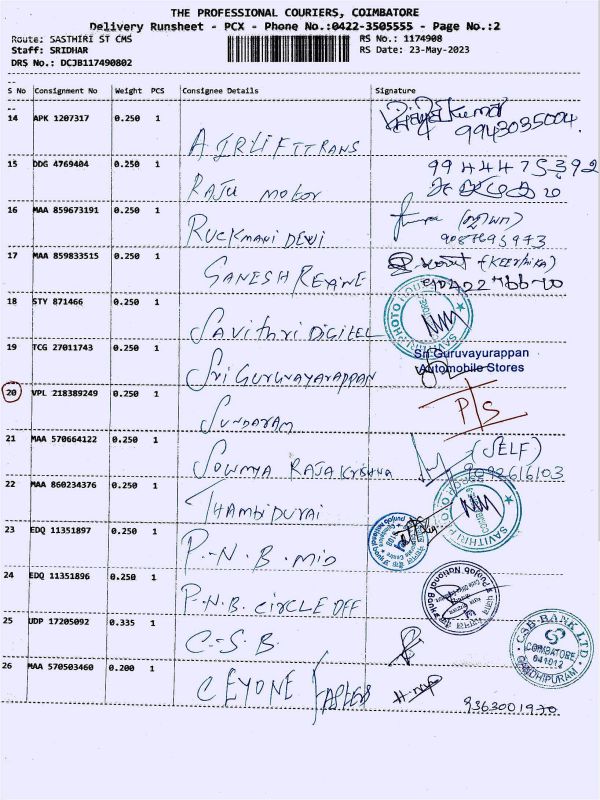 THE PROFESSIONAL COURIERS, COIMBATORE
Delivery Runsheet - PCX - Phone No.:0422-3505555 - Page No.:2
Route: SASTHIRI ST CMS
RS No.: 1174908
Staff: SRIDHAR
RS Date: 23-May-2023
DRS No.: DCJB117490802
S No Consignment No Weight PCS Consignee Details Signature
14 APK 1207317 0.250 1 AIRLIFTTRANS
9943035004.
15 DDG 4769404 0.250 1 RAJU motor
9944475392
16 MAA 859673191 0.250 1 RUCKMANI DEWI
9087695973
17 MAA 859833515 0.250 1 GANESH (KEERTHIKA)
18 STY 871466 0.250 1 SAVITHRI DIGITEL
19 TCG 27011743 0.250 1 SRI GURUVAYARAPPAN
Sri Guruvayurappan
Automobile Stores
20 VPL 218389249 0.250 1 SUNDARAM P/S
21 MAA 570664122 0.250 1 SOWMYA RAJAKRISHNA (SELF)
9092616103
22 MAA 860234376 0.250 1 THAMBIDURAI
23 EDQ 11351897 0.250 1 P.N.B. MID
24 EDQ 11351896 0.250 1 P.N.B. CIRCLE OFF
25 UDP 17205092 0.335 1 C-S.B.
CSB-BANK LTD.
COIMBATORE
641012
GANDHIPURAM
26 MAA 570503460 0.200 1 CEYONE
9363001970